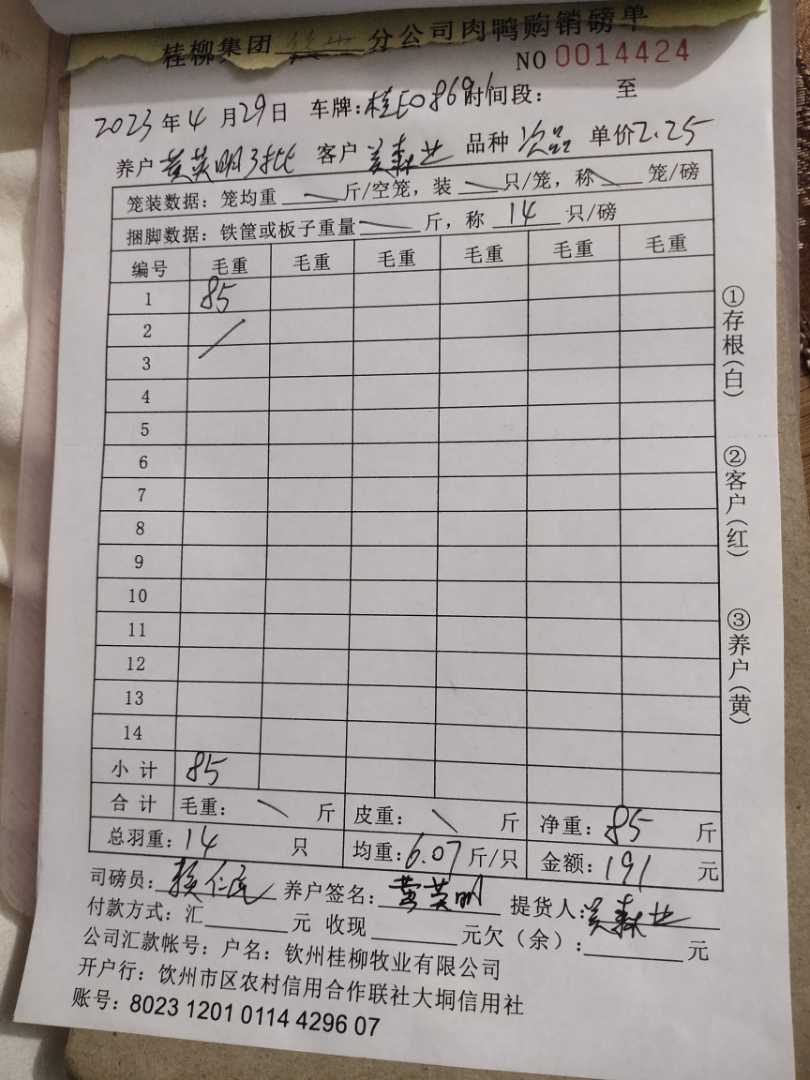 桂柳集团 分公司肉鸭购销磅单
NO 0014424
2023年4月29日 车牌:桂E0869 时间段: 至
养户 黄英明 客户 品种 次品 单价2.25
笼装数据: 笼均重 斤/空笼, 装 只/笼, 称 笼/磅
捆脚数据: 铁筐或板子重量 斤, 称 14 只/磅
编号 毛重 毛重 毛重 毛重 毛重 毛重
1 85
2
3
4
5
6
7
8
9
10
11
12
13
14
小计 85
合计 毛重: 斤 皮重: 斤 净重: 85 斤
总羽重: 14 只 均重: 6.07 斤/只 金额: 191 元
司磅员: 养户签名: 黄英明 提货人:
付款方式: 汇 元 收现 元欠(余): 元
公司汇款帐号: 户名: 钦州桂柳牧业有限公司
开户行: 钦州市区农村信用合作联社大垌信用社
账号: 8023 1201 0114 4296 07
①存根(白)
②客户(红)
③养户(黄)